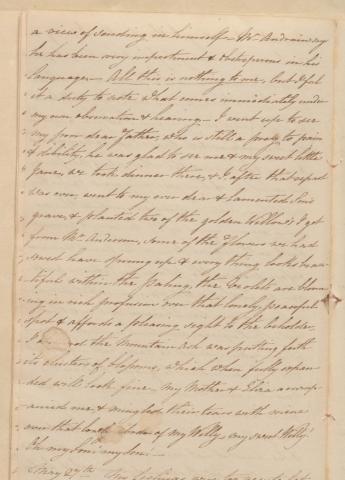 a view of sending in himself — Mr. Andrain say
he has been very impertinent & obstreperous in his
language — All this is nothing to me, but I feel
it a duty to note what comes immediately under
my own observation & hearing — I went up to see
my poor dear Father, who is still a prey to pain
& debility, he was glad to see me & my sweet little
Jane, we took dinner there, & I after that repast
was over, went to my ever dear & lamented Son's
grave, & planted two of the golden Willows I got
from Mr. Anderson, some of the flowers we had
sowed have sprung up & every thing looks beau
tiful within the paling, the Violets are bloom
ing in rich profusion over that lonely, peaceful
spot & affords a pleasing sight to the beholder
the Mountain Ash was putting forth
its clusters of blossoms, which when fully expan
ded will look fine, My Mother & Eliza accomp
anied me & mingled their tears with mine
over that bed of my Willy, my sweet Willy
Oh my Son! my Son! —
May 27th